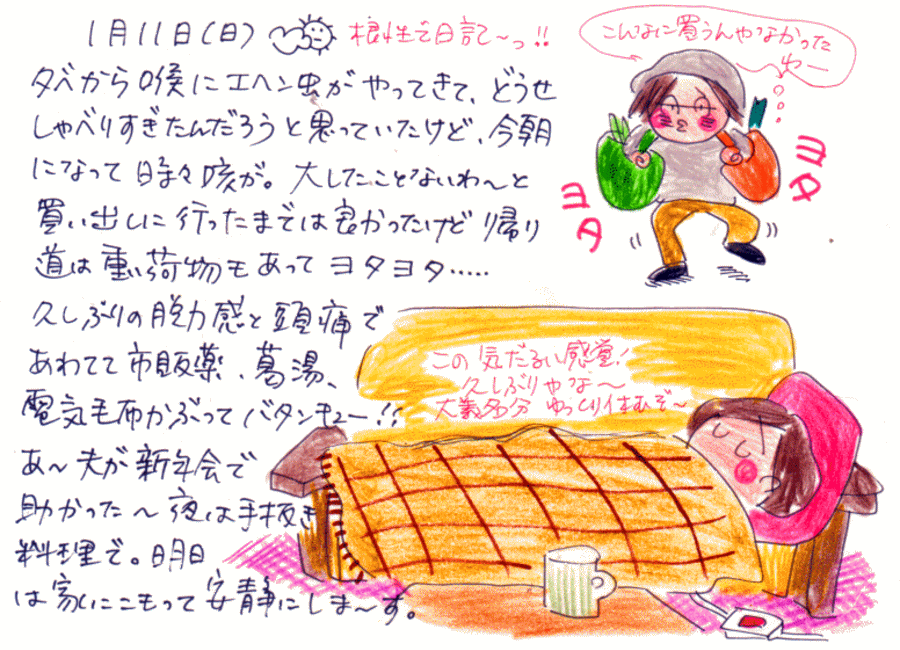 1月11日(日) 根性で日記〜っ!!
こんなに買うんやなかったわー
夕べから喉にエヘン虫がやってきて、どうせ
しゃべりすぎたんだろうと思っていたけど、今朝
になって時々咳が。大したことないわ〜と
買い出しに行ったまでは良かったけど帰り
道は重い荷物もあってヨタヨタ‥‥‥
ヨタ
ヨタ
久しぶりの脱力感と頭痛で
あわてて市販薬、葛湯、
電気毛布かぶってバタンキュー!!
あ〜夫が新年会で
助かった〜夜は手抜き
料理で。明日
は家にこもって安静にしま〜す。
この気だるい感覚!
久しぶりやな〜
大義名分 ゆっくり休むぞ〜